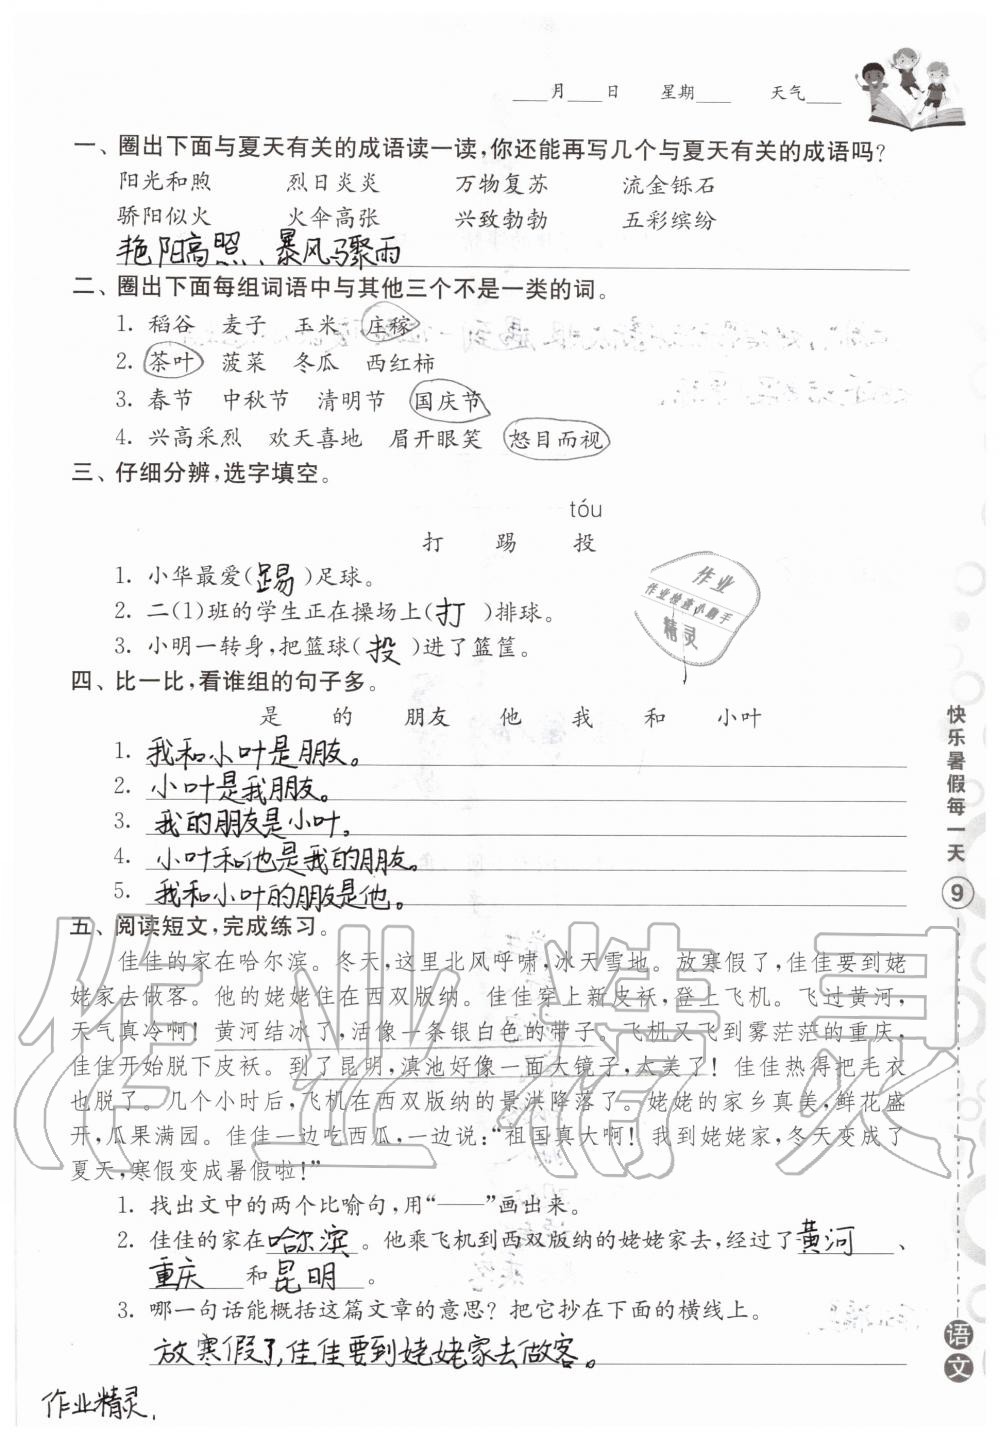 ____月____日 星期____ 天气____
一、圈出下面与夏天有关的成语读一读,你还能再写几个与夏天有关的成语吗?
阳光和煦 烈日炎炎 万物复苏 流金铄石
骄阳似火 火伞高张 兴致勃勃 五彩缤纷
艳阳高照、暴风骤雨
二、圈出下面每组词语中与其他三个不是一类的词。
1. 稻谷 麦子 玉米 庄稼
2. 茶叶 菠菜 冬瓜 西红柿
3. 春节 中秋节 清明节 国庆节
4. 兴高采烈 欢天喜地 眉开眼笑 怒目而视
三、仔细分辨,选字填空。
tóu
打 踢 投
1. 小华最爱(踢)足球。
2. 二(1)班的学生正在操场上(打)排球。
3. 小明一转身,把篮球(投)进了篮筐。
作业
作业检查小助手
精灵
四、比一比,看谁组的句子多。
是 的 朋友 他 我 和 小叶
1. 我和小叶是朋友。
2. 小叶是我朋友。
3. 我的朋友是小叶。
4. 小叶和他是我的朋友。
5. 我和小叶的朋友是他。
五、阅读短文,完成练习。
佳佳的家在哈尔滨。冬天,这里北风呼啸,冰天雪地。放寒假了,佳佳要到姥
姥家去做客。他的姥姥住在西双版纳。佳佳穿上新皮袄,登上飞机。飞过黄河,
天气真冷啊!黄河结冰了,活像一条银白色的带子。飞机又飞到雾茫茫的重庆,
佳佳开始脱下皮袄。到了昆明,滇池好像一面大镜子,太美了!佳佳热得把毛衣
也脱了。几个小时后,飞机在西双版纳的景洪降落了。姥姥的家乡真美,鲜花盛
开,瓜果满园。佳佳一边吃西瓜,一边说:“祖国真大啊!我到姥姥家,冬天变成了
夏天,寒假变成暑假啦!”
1. 找出文中的两个比喻句,用“——”画出来。
2. 佳佳的家在哈尔滨。他乘飞机到西双版纳的姥姥家去,经过了黄河、
重庆和昆明。
3. 哪一句话能概括这篇文章的意思?把它抄在下面的横线上。
放寒假了,佳佳要到姥姥家去做客。
作业精灵
快乐暑假每一天
9
语文
作业精灵